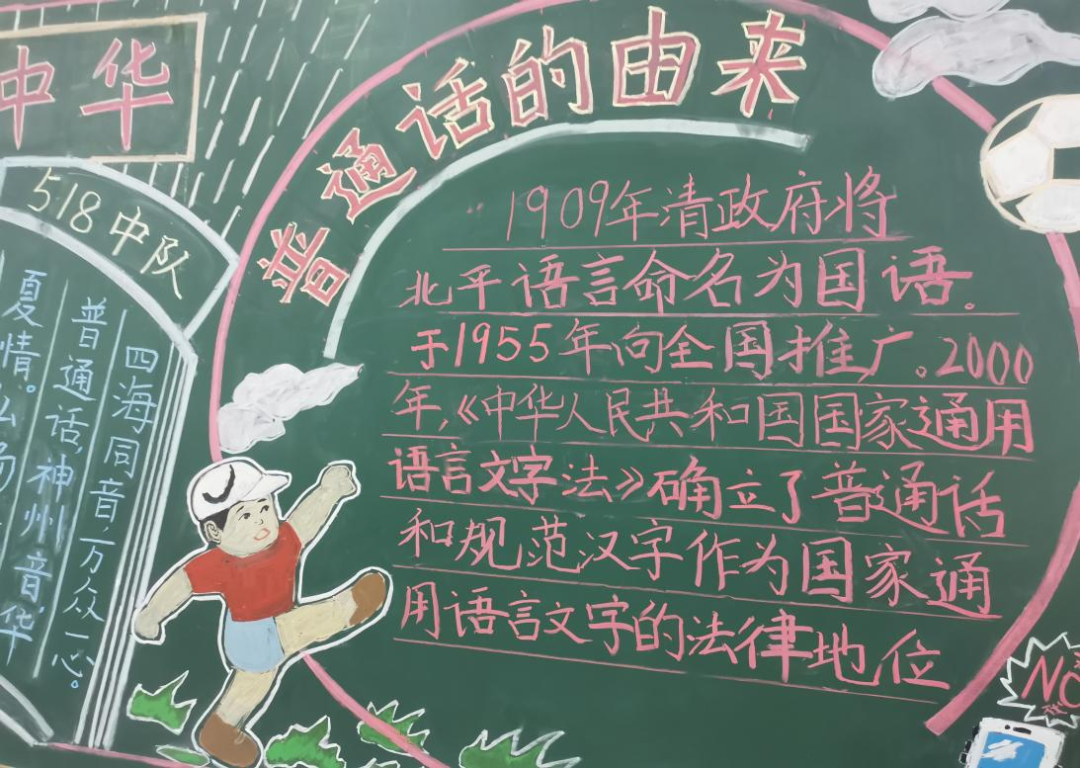 中华
518中队
四海同音,万众一心。
普通话,神州音,华
夏情。弘扬
普通话的由来
1909年清政府将
北平语言命名为国语。
于1955年向全国推广。2000
年,《中华人民共和国国家通用
语言文字法》确立了普通话
和规范汉字作为国家通
用语言文字的法律地位
NO